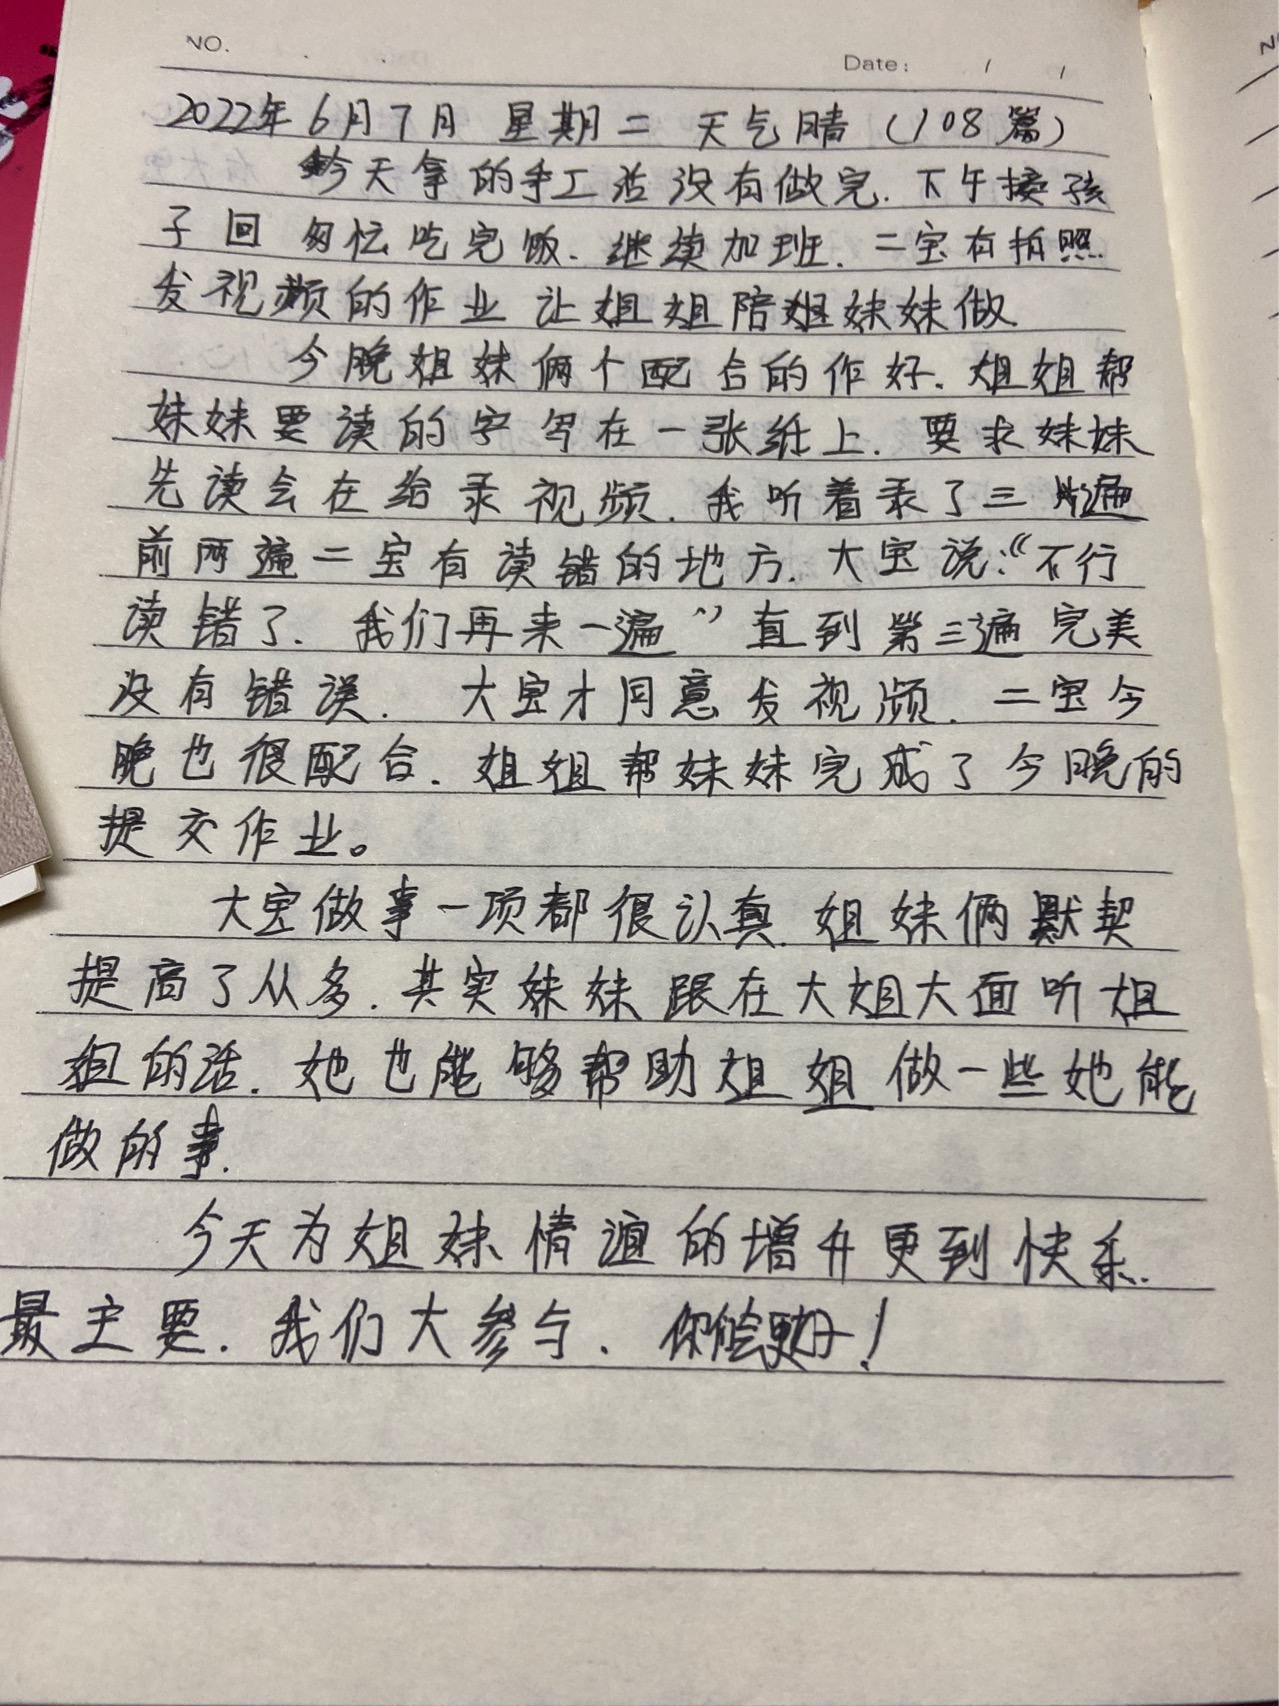 NO.
Date: / /
2022年6月7月 星期二 天气晴（108篇）
今天拿的手工活没有做完.下午接孩
子回 匆忙吃完饭.继续加班.二宝有拍照
发视频的作业 让姐姐陪妹妹做
今晚姐妹俩个配合的作好.姐姐帮
妹妹要读的字写在一张纸上.要求妹妹
先读会在给录视频.我听着录了三遍
前两遍二宝有读错的地方.大宝说:“不行
读错了.我们再来一遍”直到第三遍完美
没有错误. 大宝才同意发视频.二宝今
晚也很配合.姐姐帮妹妹完成了今晚的
提交作业。
大宝做事一项都很认真.姐妹俩默契
提高了从多.其实妹妹跟在大姐大面听姐
姐的话.她也能够帮助姐姐做一些她能
做的事.
今天为姐妹情谊的增升更到快乐.
最主要.我们大参与.你会更好！